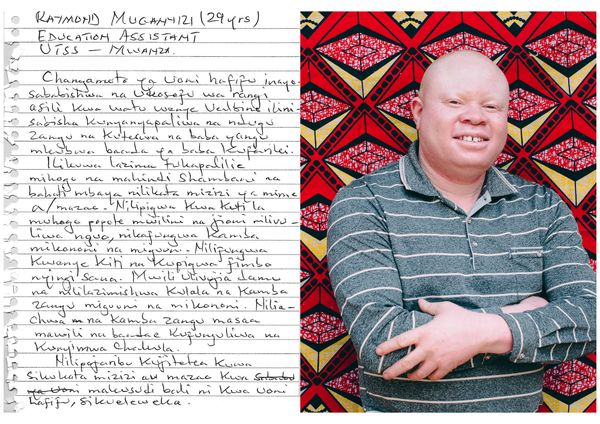 RAYMOND MUGANYIZI (29 yrs)
EDUCATION ASSISTANT
UTSS – MWANZA.
Changamoto ya uoni hafifu inayo-
sababishwa na ukosefu wa rangi
asili kwa watu wenye ualbino ilini-
sabisha kunyanyapaliwa na ndugu
zangu na kuteswa na baba yangu
mkubwa baada ya baba kufariki.
Ilikuwa lazima tukapalilie
mihogo na mahindi shambani na
bahati mbaya nilikata mizizi ya mime
a/mazao. Nilipigwa kwa kuti la
muhogo popote mwilini na jioni nilivu-
liwa nguo, nikafungwa kamba
mikononi na miguuni. Nilifungwa
kwenye kiti na kupigwa fimbo
nyingi sana. Mwili ulivujia damu
na nililazimishwa kulala na kamba
zangu miguuni na mikononi. Nilia-
chwa na kamba zangu masaa
mawili na baadae kufunguliwa na
kunyimwa chakula.
Nilipojaribu kujitetea kuwa
sikukata mizizi au mazao kwa
makusudi bali ni kwa uoni
hafifu, sikueleweka.